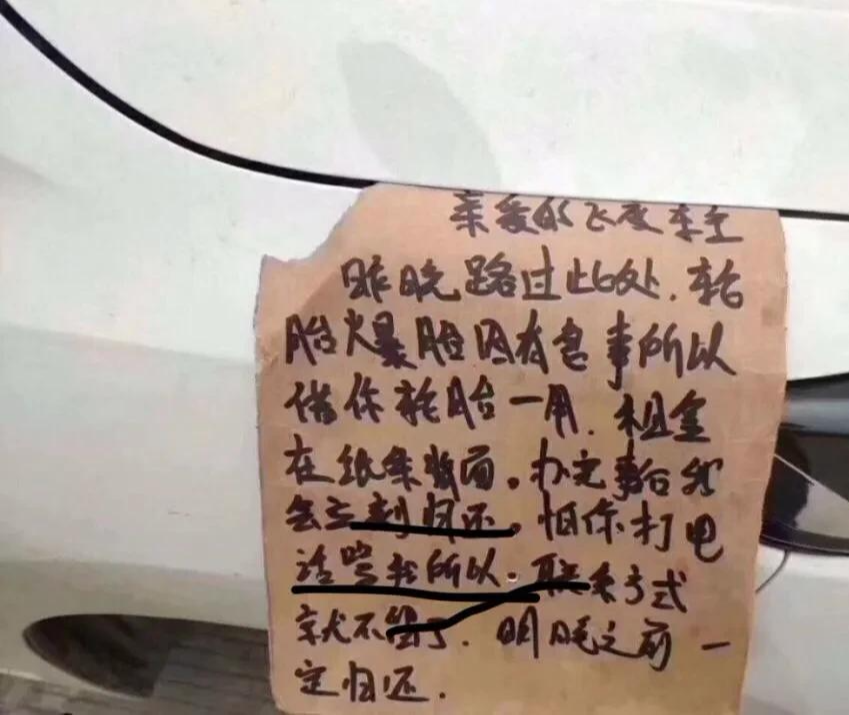 亲爱的飞度车主
昨晚路过此处.轮
胎爆胎因有急事所以
借你轮胎一用.租金
在纸条背面。办完事后我
会立刻归还。怕你打电
话骂我所以.联系方式
就不留了.明晚之前一
定归还.